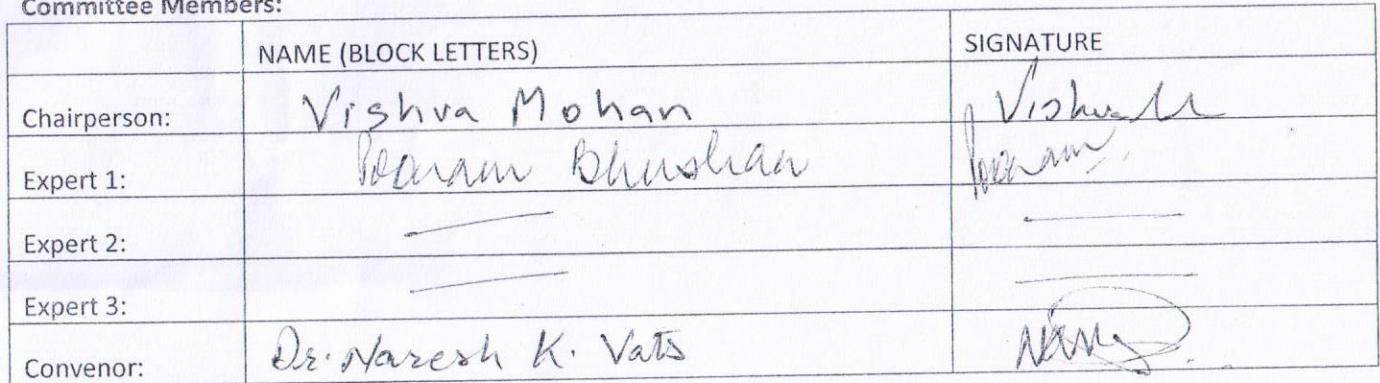 Committee Members:
NAME (BLOCK LETTERS) SIGNATURE
Chairperson: Vishva Mohan
Expert 1: Poonam Bhushan Poonam
Expert 2: — —
Expert 3: — —
Convenor: Dr. Naresh K. Vats